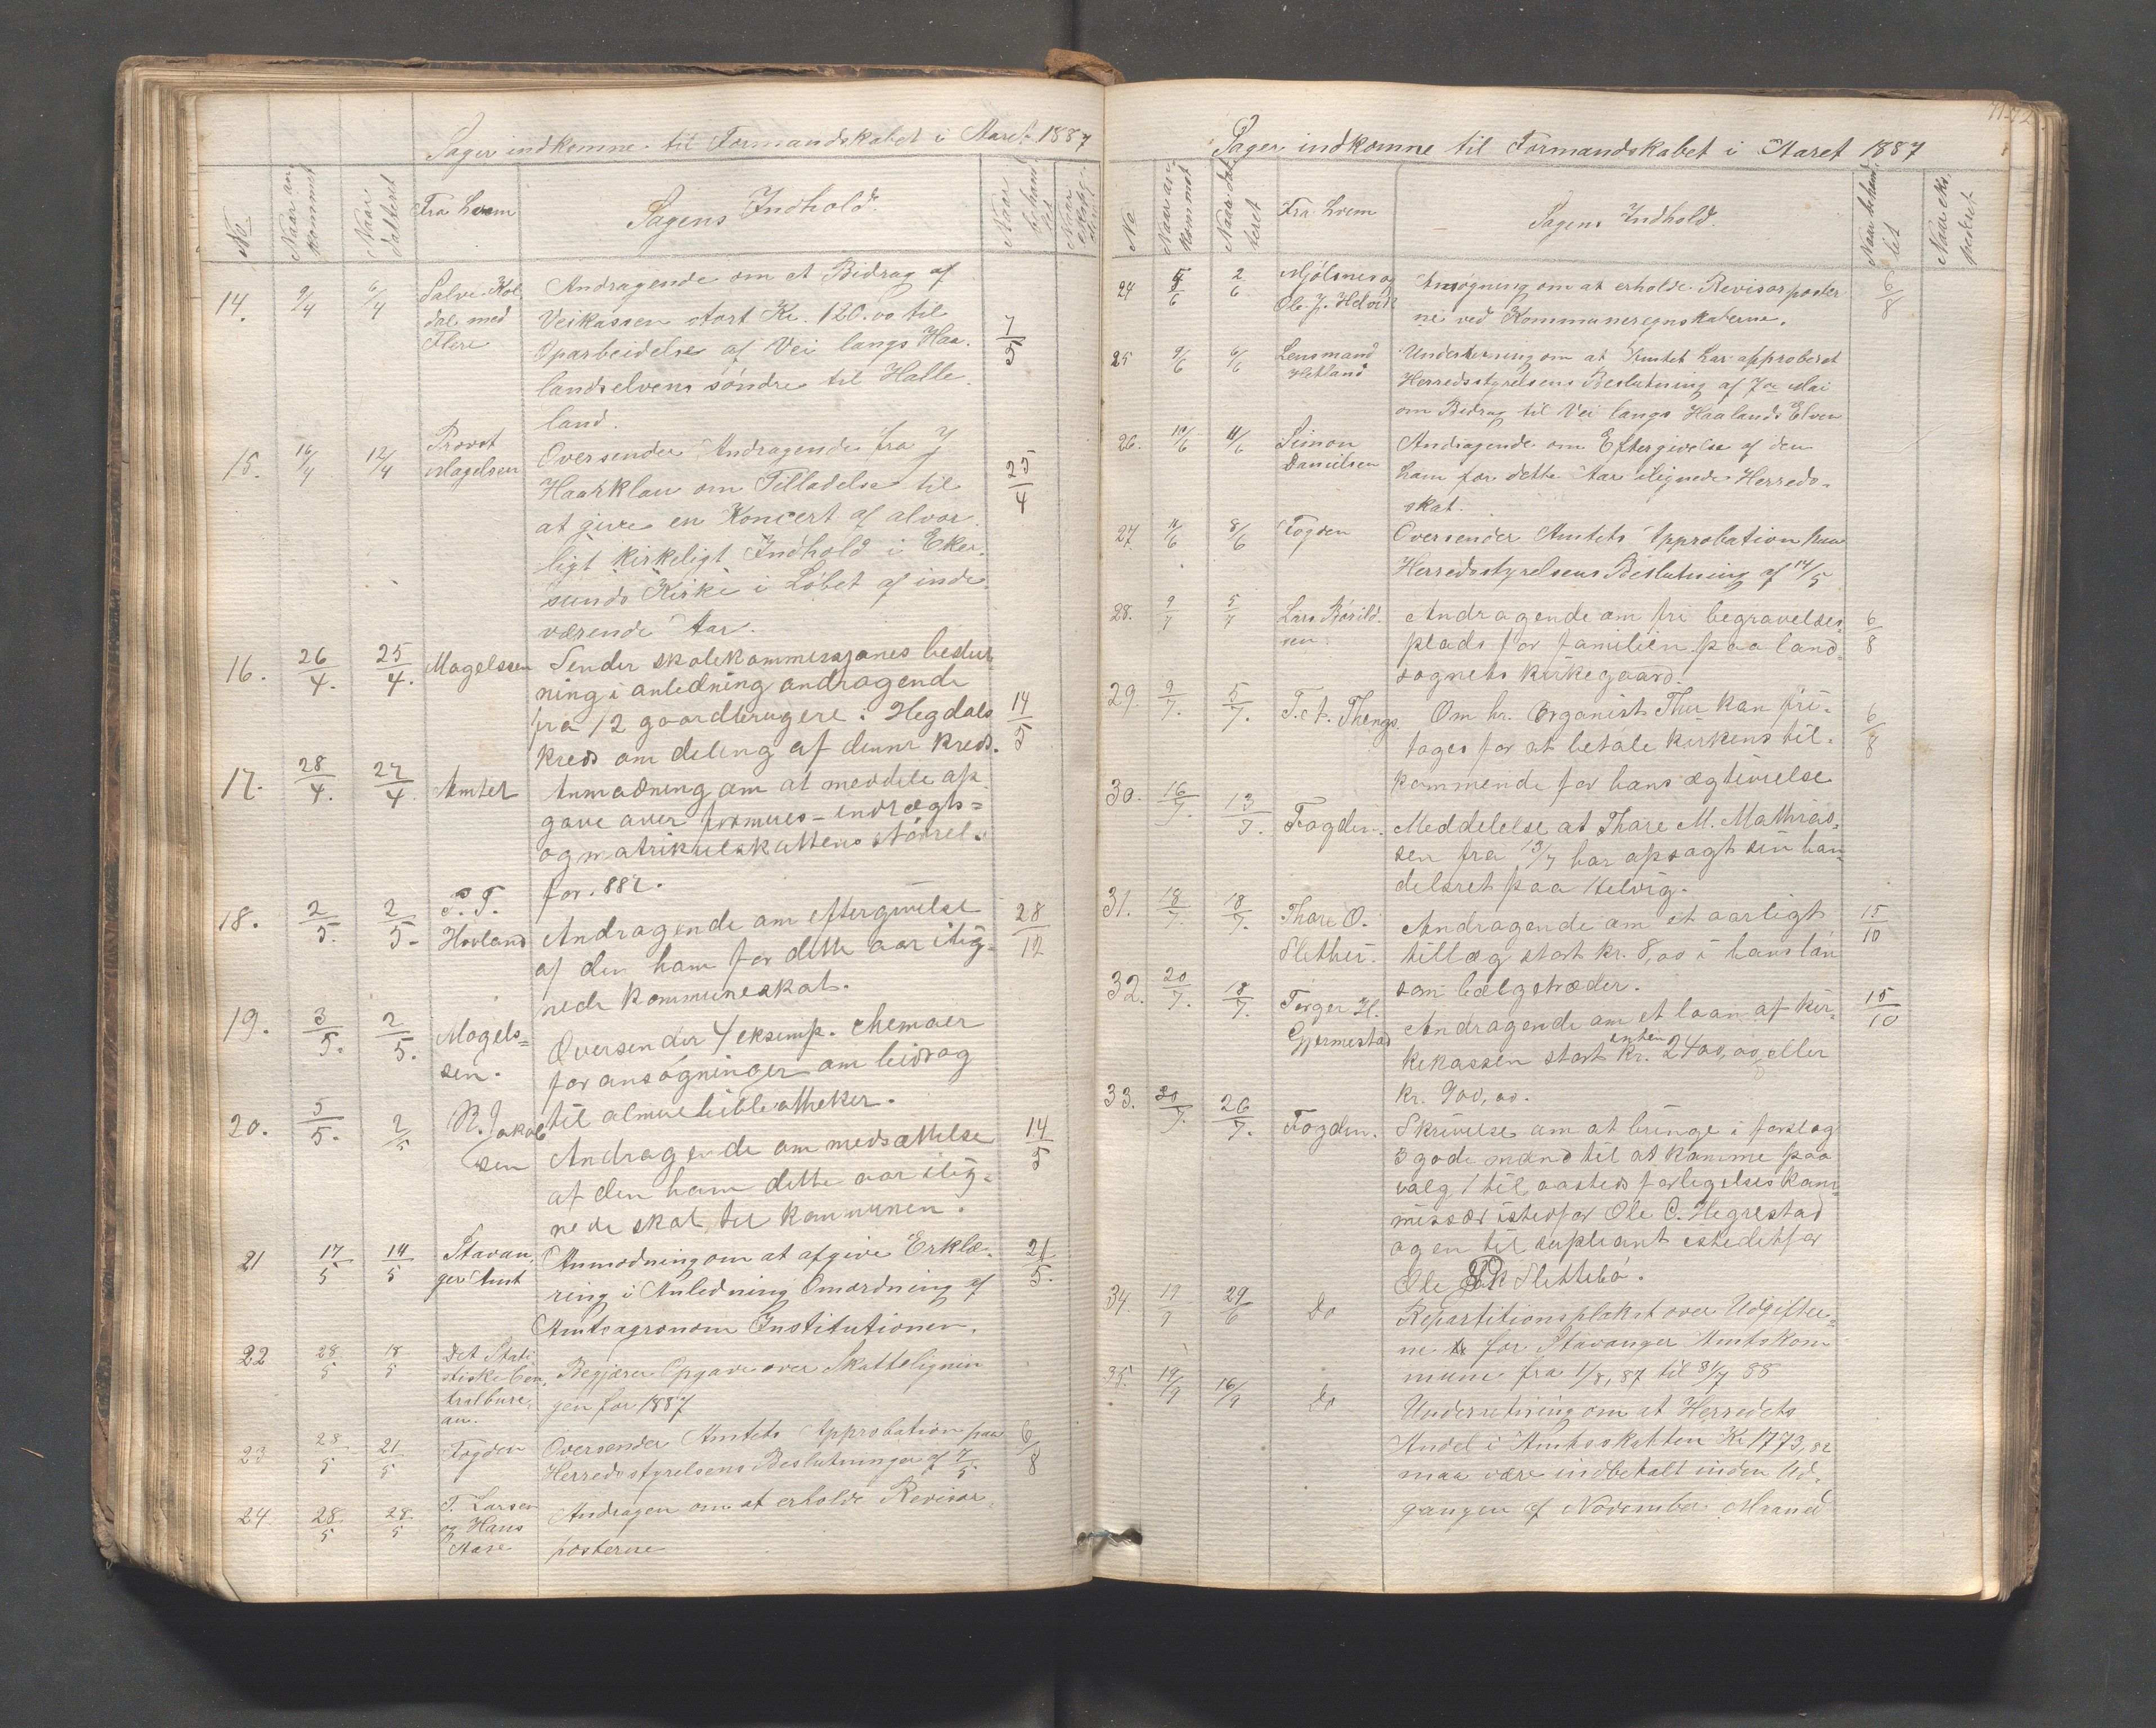 Sager indkomne til Formandskabet i Aaret 1887
No
Naar an
kommet
Naar
datteret
Fra hvem
Sagens Indhold.
Naar
behand
let
Naar
14.
9/4
6/4
Salve Kol
dal med
Flere
Andragende om et Bidrag af
Veikassen stort Kr. 120.00 til
Oparbeidelse af Vei langs Haa-
landselvens söndre til Halle
land.
7/5
15.
16/4
12/4
Provst
Magelsen
Oversender Andragende fra J
Haarklau om Tilladelse til
at give en Koncert af alvor
ligt kirkeligt Indhold i Eker-
sunds Kirke i Löbet af inde
værende Aar.
25/4
16.
26/4.
25/4.
Magelssen
Sender skolekommissjones beslut
ning i anledning andragende
fra 12 gaardbrugere i Hegdals
kreds om deling af denne kreds.
14/5
17.
28/4.
27/4
Amtet
Anmodning om at meddele op
gave over formues- indtægts=
og matrikulskattens störrel.
for. 887.
18.
2/5.
2/5.
T. T.
Hovland
Andragende om eftergivelse
af den ham for dette aar ilig-
nede kommuneskat.
28/12
19.
3/5.
2/5.
Magels=
sen.
Oversender 4 eksemp. skemaer
for ansögninger om bidrag
til almuebibliotheker.
20.
5/5.
2/5
R. Jakob
sen
Andragende om nedsættelse
af den ham dette aar ilig-
nede skat til kommunen.
14/5
21
17/5
14/5
Stavan
ger Amt
Anmodning om at afgive Erklæ-
ring i Anledning Omordning af
Amtsagronom Institutionen.
21/5.
22
28/5
18/5
Det Stati
stiske Cen
tralbure
au.
Begjærer Opgave over Skattelignin
gen for 1887
23
28/5
21/5
Fogden
Oversender Amtets Approbation paa
Herredsstyrelsens Beslutninger af 7/5.
6/8
24
28/5
28/5
T. Larsen
og Hans
Aase
Andragen om at erholde Revisor
posterne
Sager indkomne til Formandskabet i Aaret 1887
No
Naar an
kommet
Naar dat
teret
Fra hvem
Sagens Indhold.
Naar behand
let
Naar eks
pederet
24
5/6
2/6
Mjölsnes og
Ole J. Helvik
Ansögning om at erholde Revisorposter
ne ved Kommuneregnskaberne.
6/8
25
9/6
6/6
Lensmand
Hetland
Underretning om at Amtet har approberet
Herredsstyrelsens Beslutning af 7de Mai
om Bidrag til Vei langs Haalands Elven
26.
11/6
Simon
Danielsen
Andragende om Eftergivelse af den
ham for dette Aar ilignede Herreds-
skat.
27.
11/6
8/6
Fogden
Oversender Amtets Approbation paa
Herredsstyrelsens Beslutning af 14/5
28.
9/7
5/7
Lars
Andragende om fri begravelses-
plads for familien paa land-
sognets kirkegaard.
6/8
29.
9/7.
5/7.
Om hr. Organist Thu kan fri-
tages for at betale kirkens til-
kommende for hans ægtevielse
6/8
30.
16/7.
13/7.
Fogden.
Meddelelse at Thore M. Mathias-
sen fra 13/7 har opsagt sin han-
delsret paa Helvig.
31.
18/7.
18/7.
Thore O.
Slethei.
Andragende om et aarligt
tillæg stort kr. 8,00 i hans lön
som bælgetræder.
15/10
32.
20/7.
18/7.
Torger H.
Gjermestad
Andragende om et laan af kir-
kekassen stort enten kr. 2400,00 eller
kr. 900,00.
15/10
33.
30/7.
26/7.
Fogden.
Skrivelse om at bringe i forslag
3 gode mænd til at komme paa
valg 1 til aasteds forligelseskom-
missær istedfor Ole C. Hegrestad
og en til supleant istedetfor
Ole Slettebö.
34.
19/9
29/6
Do
Repartitionsplakat over Udgifter-
ne for Stavanger Amtskom
mune fra 1/8, 87 til 31/7 88
35.
19/9
16/9
Do
Underretning om at Herredets
Andel i Amtsskatten Kr 1773,82
maa være indbetalt inden Ud-
gangen af November Maaned